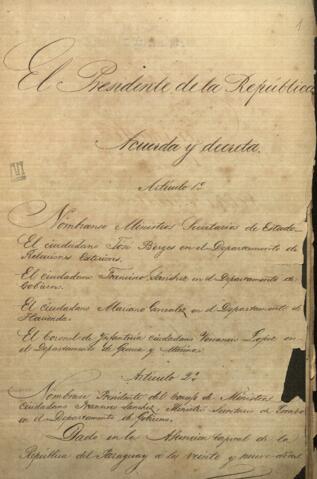 1
El Presidente de la República
Acuerda y decreta.
Artículo 1º
Nómbranse Ministros Secretarios de Estado
El ciudadano José Berges en el Departamento de
Relaciones Exteriores.
El ciudadano Francisco Sanchez en el Departamento de
Gobierno.
El ciudadano Mariano Gonzalez en el Departamento de
Hacienda.
El Coronel de Infantería ciudadano Venancio Lopez en
el Departamento de Guerra y Marina.
Artículo 2º
Nómbrase Presidente del consejo de Ministros
Ciudadano Francisco Sanchez, Ministro Secretario de Estado
en el Departamento de Gobierno.
Dado en la Asuncion Capital de la
República del Paraguay a los veinte y nueve dias